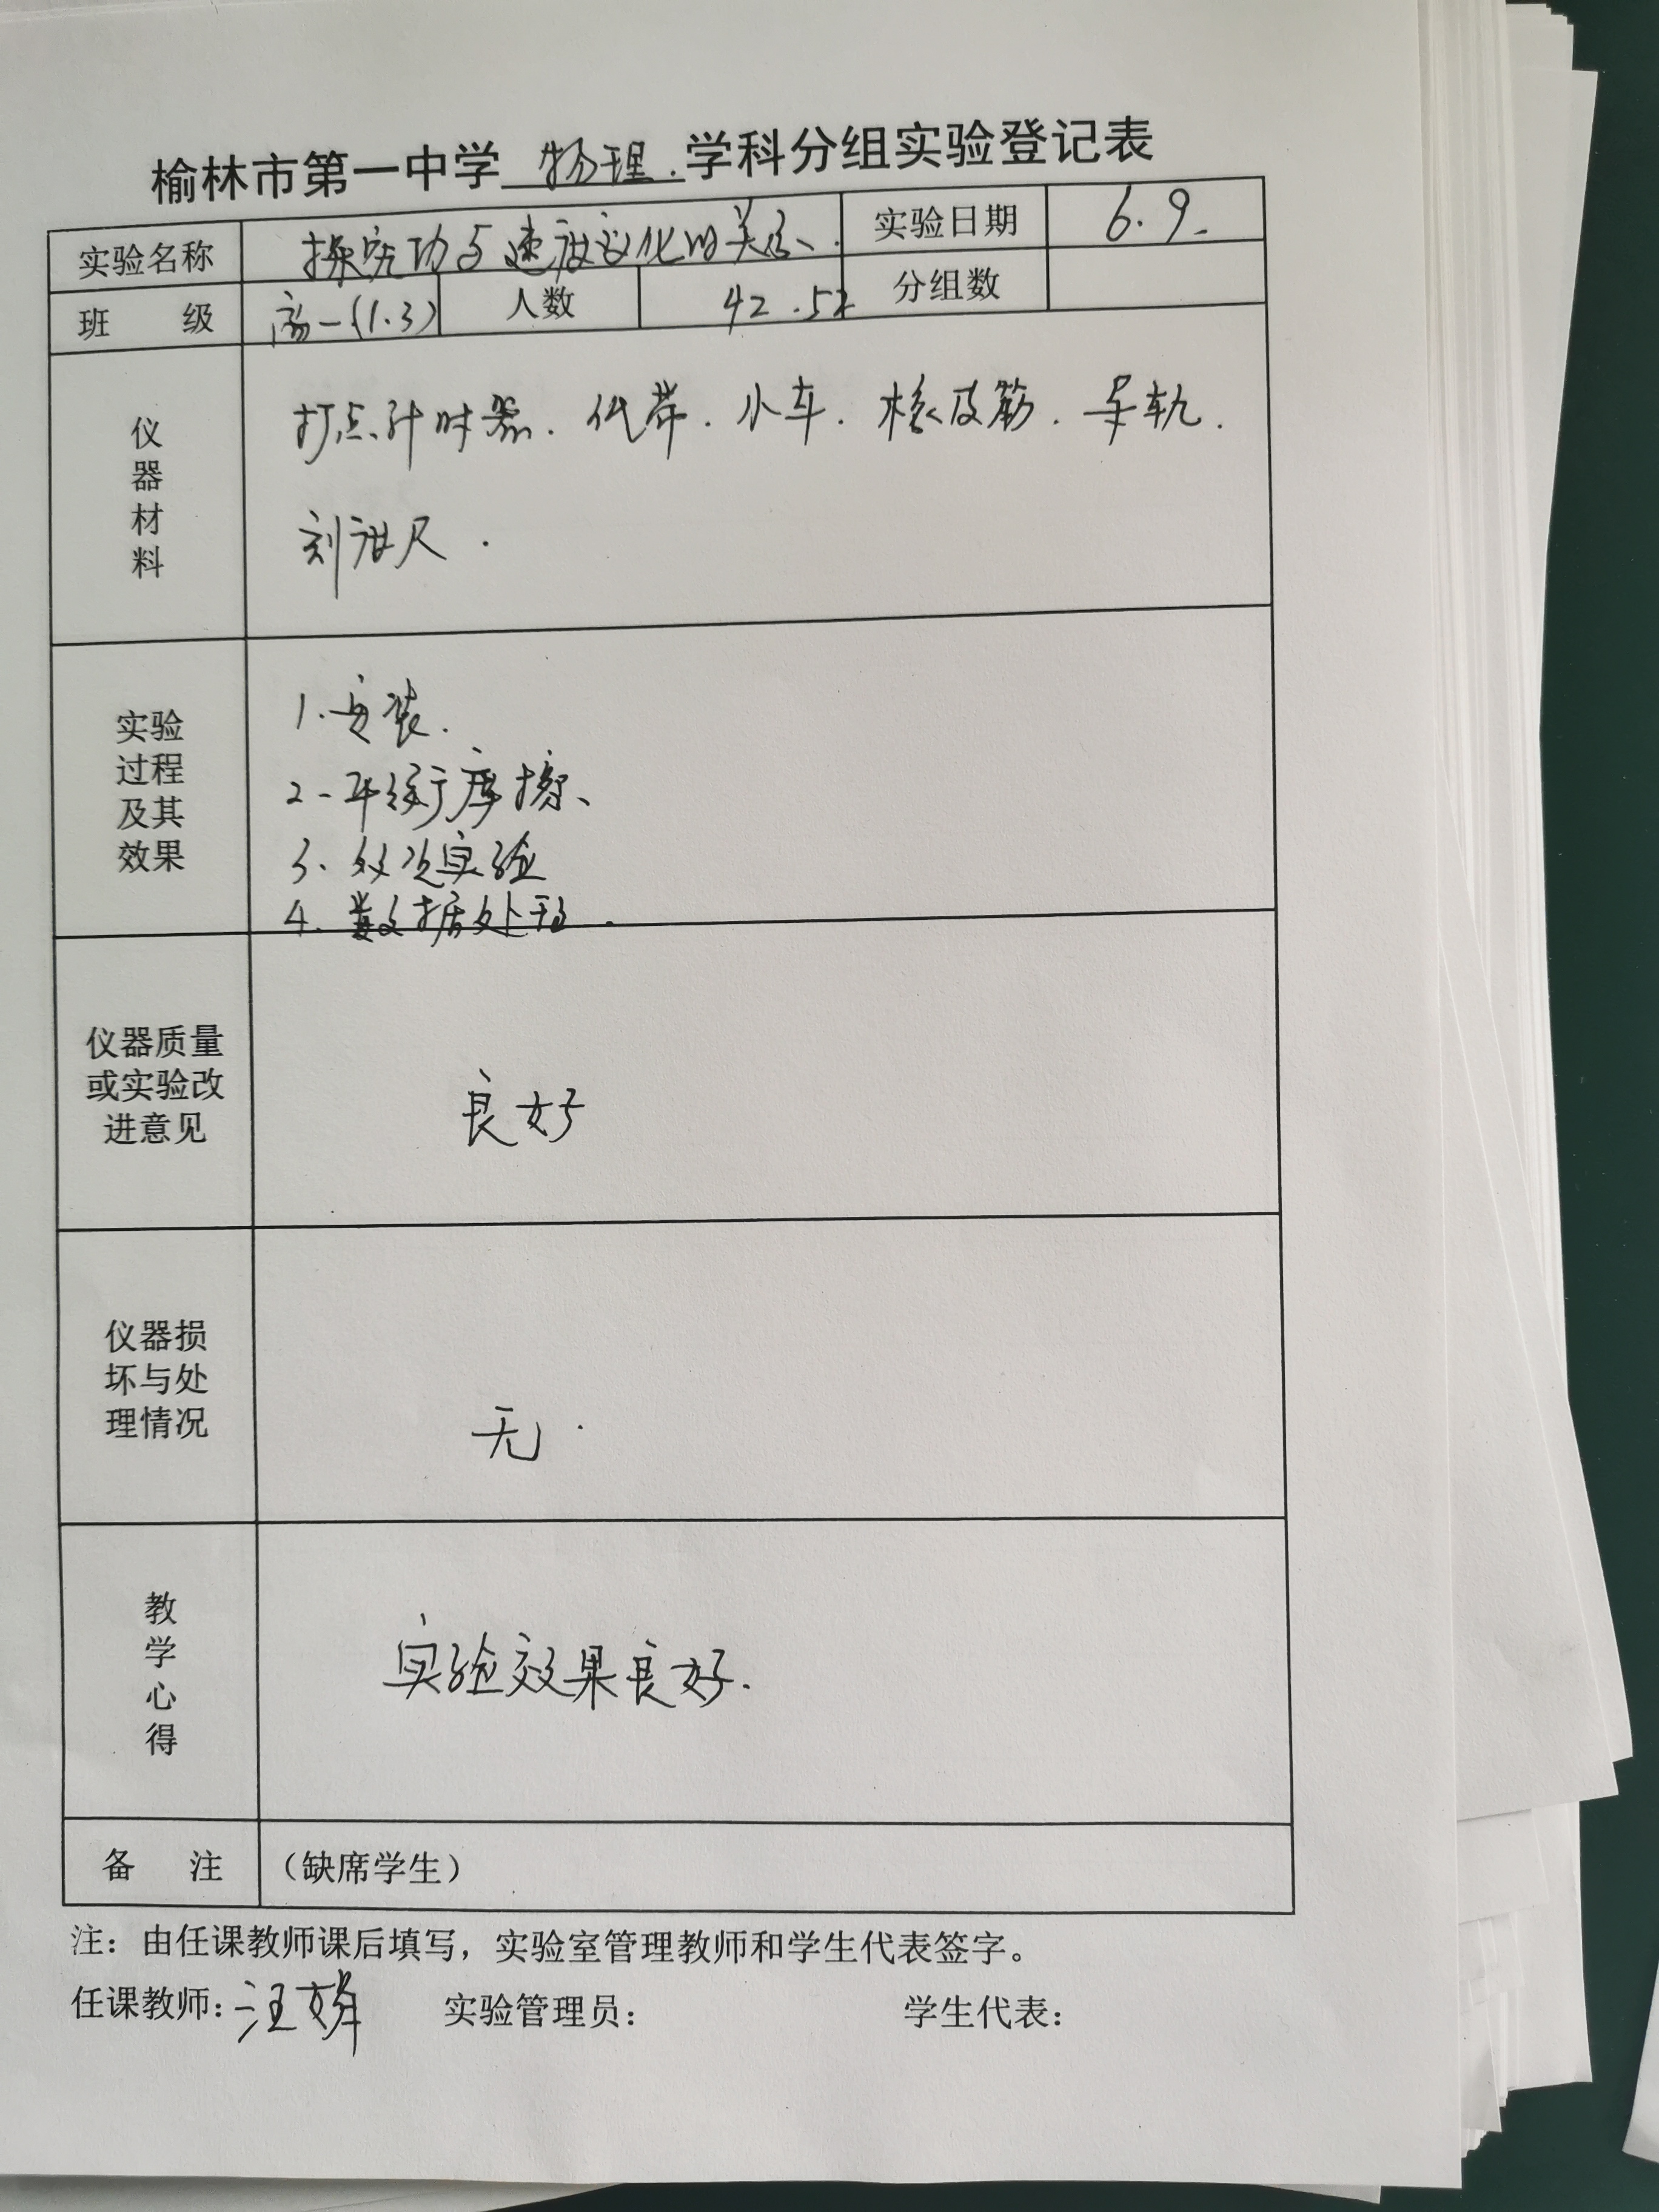 榆林市第一中学 物理 学科分组实验登记表
实验名称 探究功与速度变化的关系 实验日期 6.9.
班 级 高一(1.3) 人数 42.52 分组数
仪器材料
打点计时器. 代带. 小车. 橡皮筋. 导轨.
刻度尺.
实验过程及其效果
1.安装.
2.平衡摩擦、
3、多次实验
4.数据处理.
仪器质量或实验改进意见
良好
仪器损坏与处理情况
无.
教学心得
实验效果良好.
备 注 (缺席学生)
注：由任课教师课后填写，实验室管理教师和学生代表签字。
任课教师：汪 实验管理员： 学生代表：